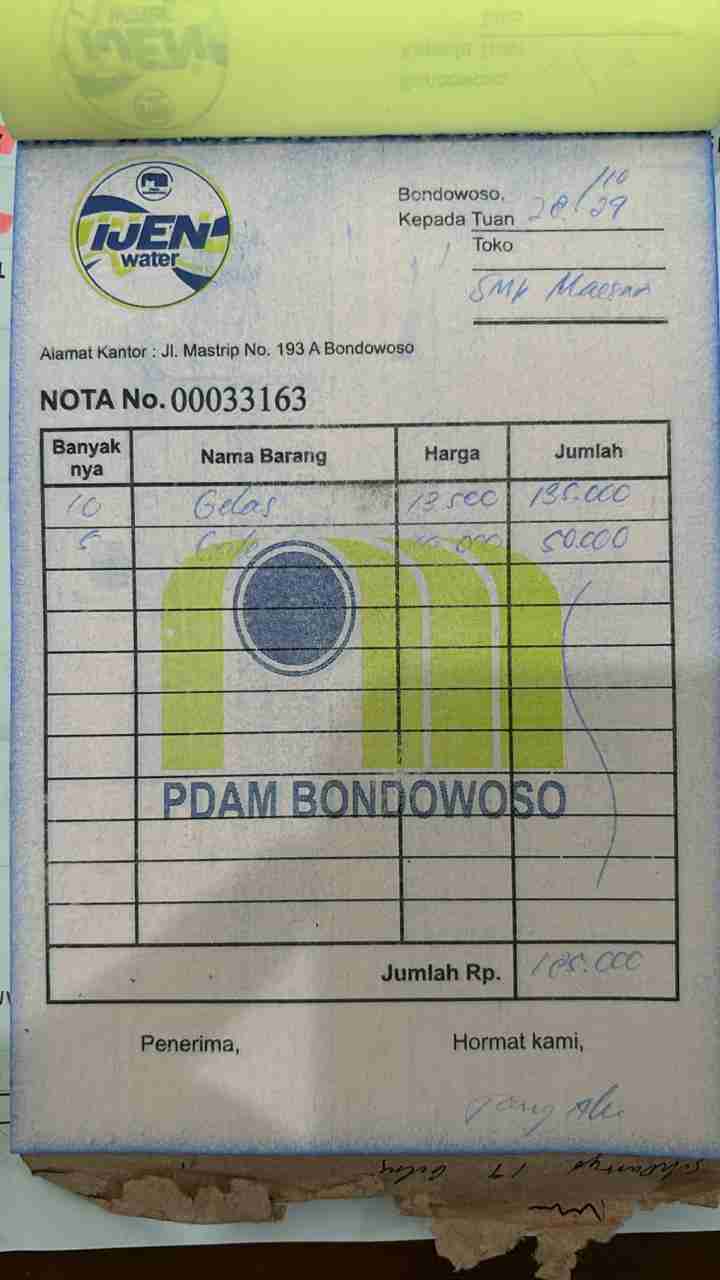 IJEN
water
Bondowoso,
/10
Kepada Tuan 28/
Toko
SMK Maesan
Alamat Kantor : Jl. Mastrip No. 193 A Bondowoso
NOTA No. 00033163
Banyak nya Nama Barang Harga Jumlah
10 Gelas 13.500 135.000
5 10.000 50.000
PDAM BONDOWOSO
Jumlah Rp. 185.000
Penerima, Hormat kami,